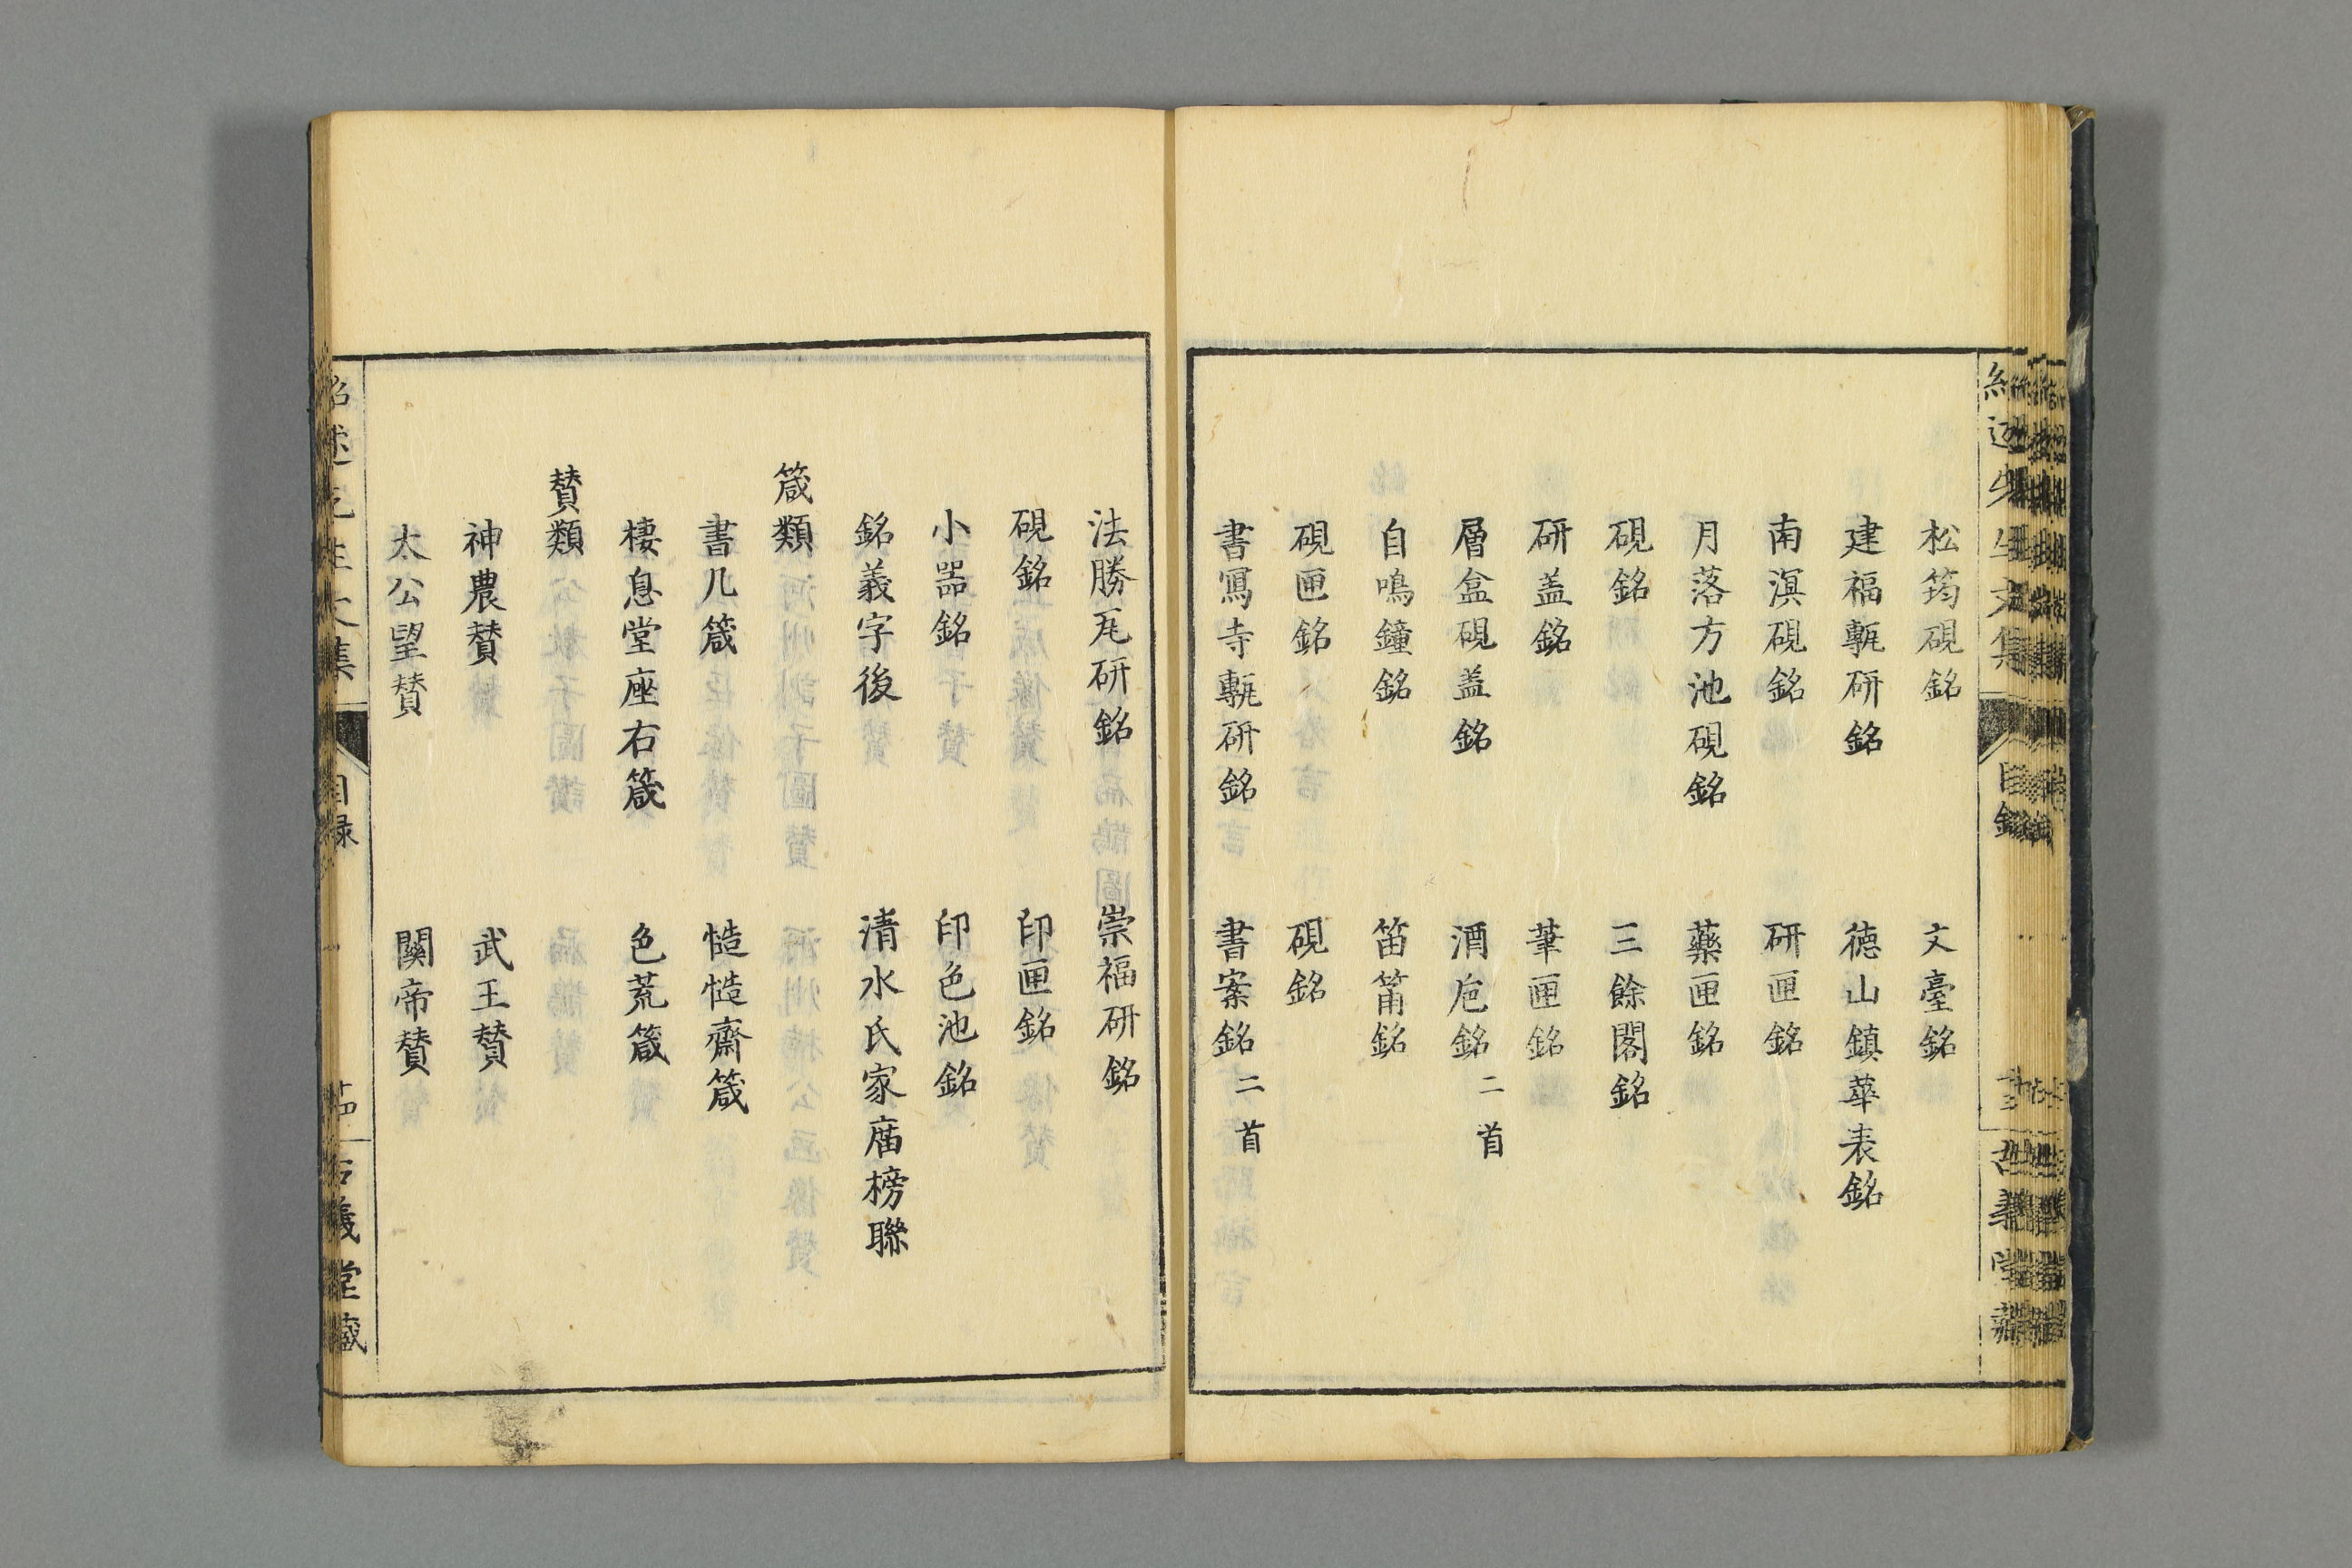 松筠硯銘 文臺銘
建福甎研銘 徳山鎮華表銘
南溟硯銘 研匣銘
月落方池硯銘 藥匣銘
硯銘 三餘閣銘
研盖銘 筆匣銘
層盒硯盖銘 酒卮銘二首
自鳴鐘銘 笛筩銘
硯匣銘 硯銘
書寫寺甎研銘 書案銘二首
法勝瓦研銘 崇福研銘
硯銘 印匣銘
小噐銘 印色池銘
銘義字後 清水氏家庿榜聯
箴類
書几箴 慥慥齋箴
棲息堂座右箴 色荒箴
賛類
神農賛 武王賛
太公望賛 關帝賛
紹述先生文集 目録 古義堂藏